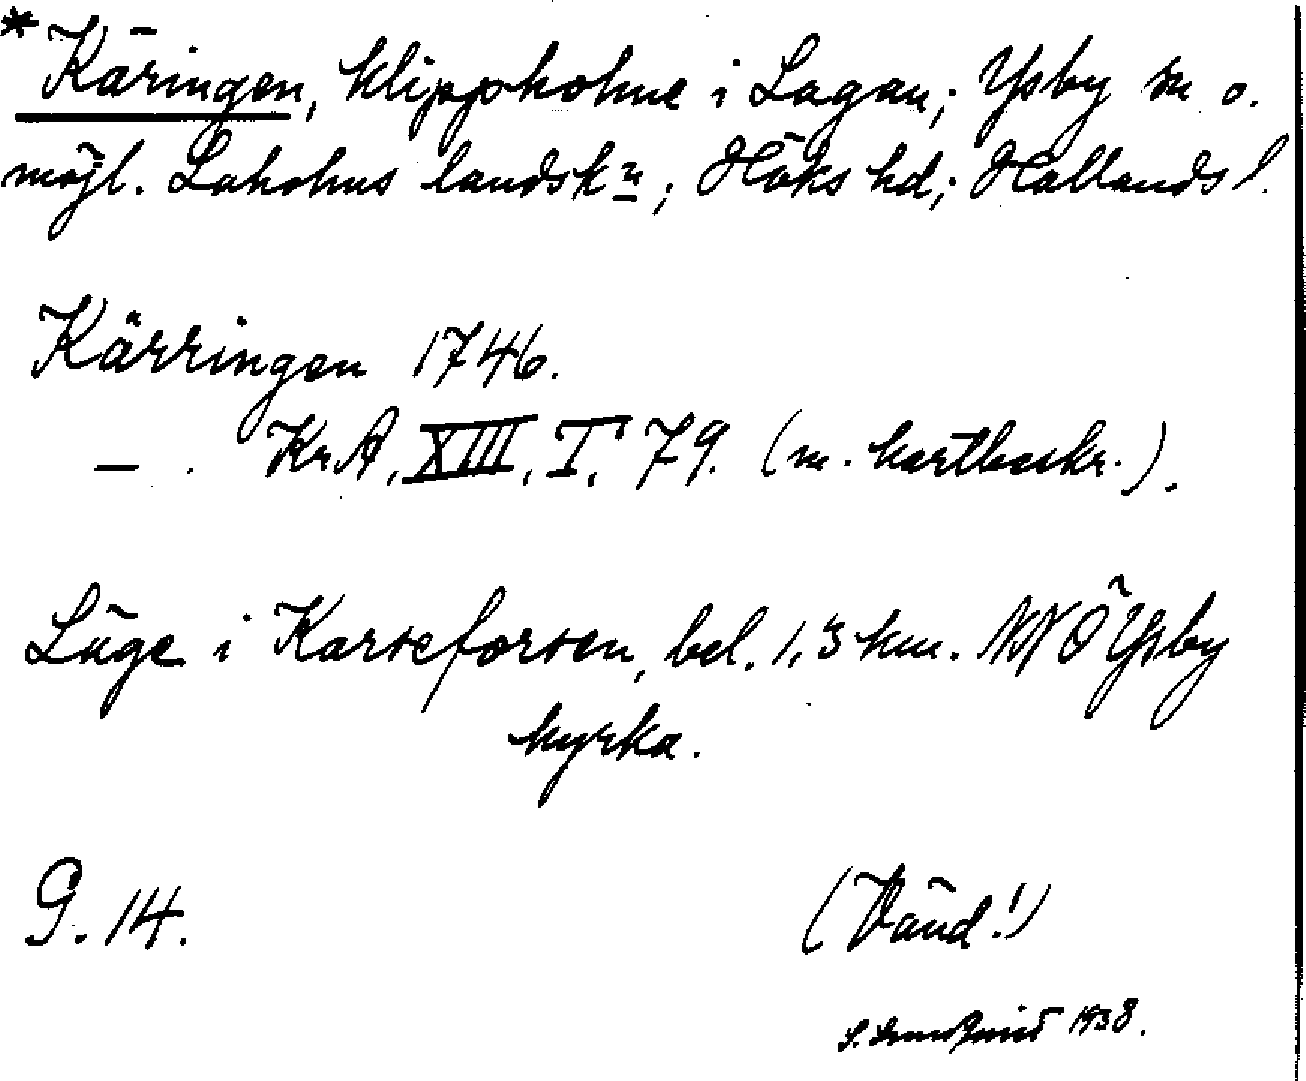 * Käringen, klippholme i Lagan; Ysby sn o.
möjl. Laholms landskn; Höks hd; Hallands l.
Kärringen 1746.
— . KrA, XIII, I, 79. (m. kartbeskr.).
Läge i Karseforsen, bel. 1,3 km. NNÖ Ysby
kyrka.
G. 14.
(Vänd!)
1938.